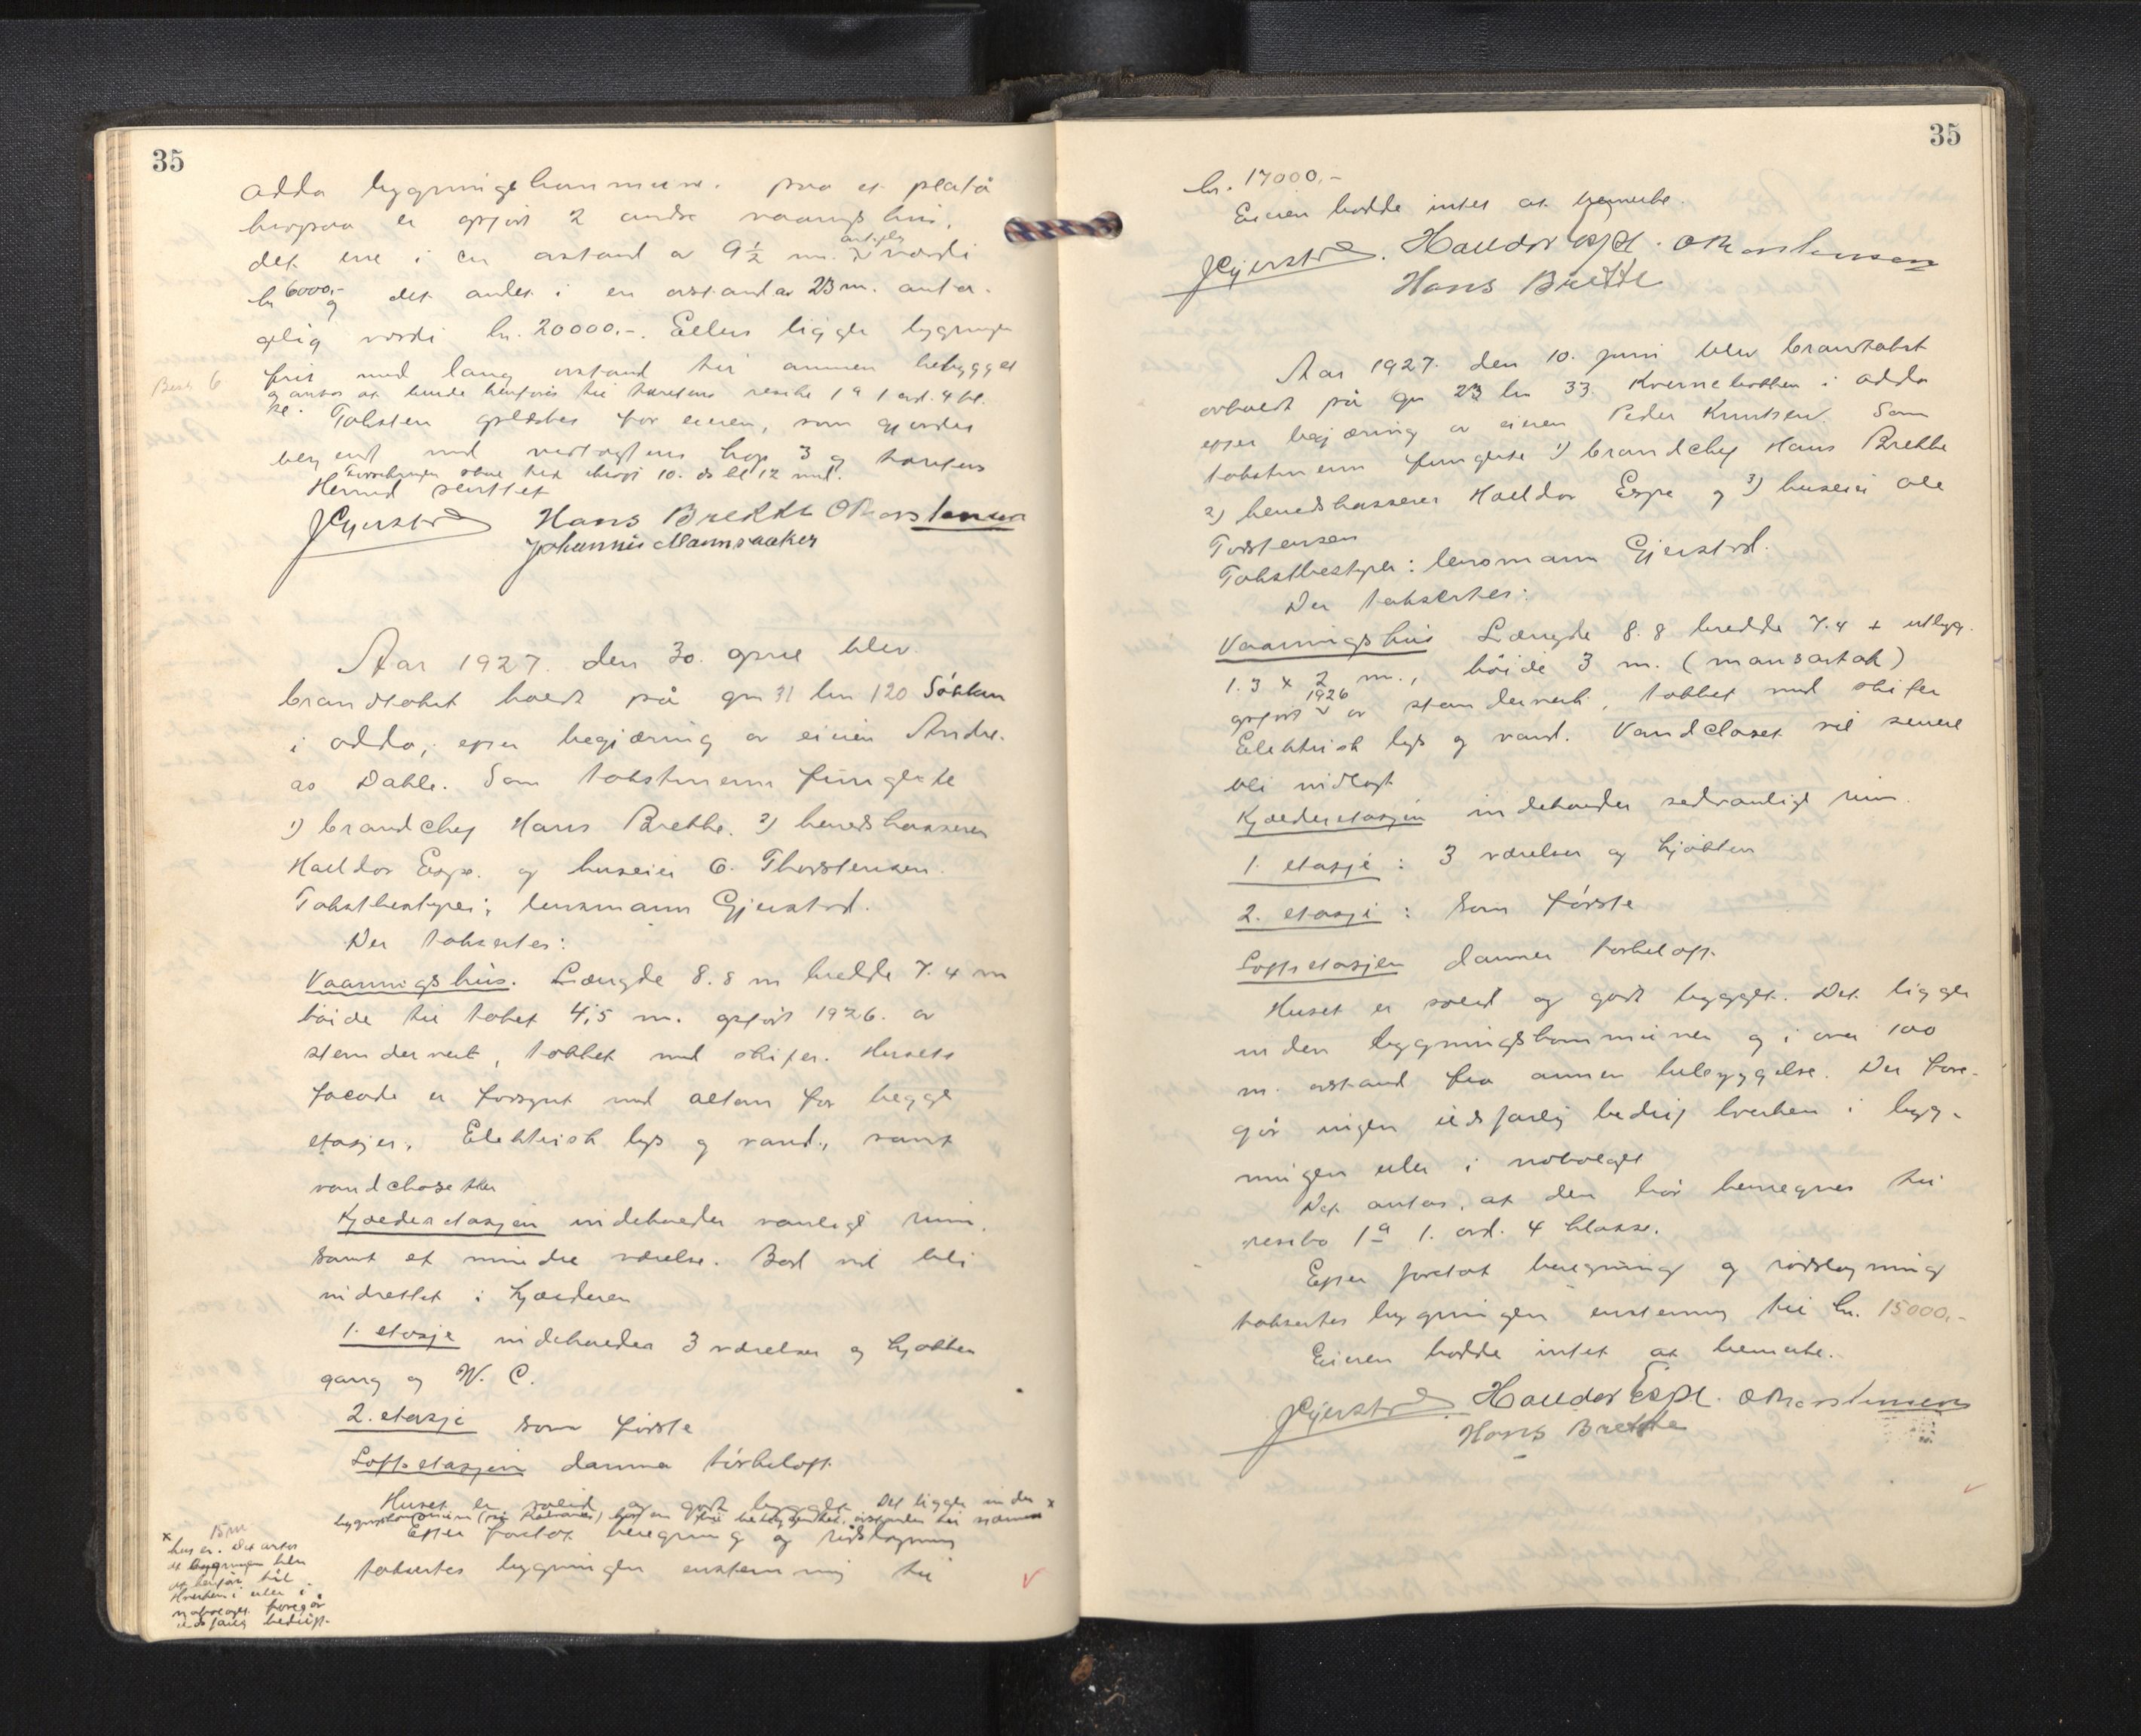 35
Odda bygningskommune. paa et platå
hvorpaa er opført 2 andre vaaningshus,
det ene i en avstand av 9½ m. antagelig værdi
kr 6000,- og det andet i en avstand av 23 m. anta-
gelig værdi kr. 20000.-. Ellers ligger bygningen
frit med lang avstand til annen bebyggel
se. og antas at kunde henføres til tarifens resiko 1a 1 avd. 4 kl.
Taksten oplæstes for eieren, som gjordes
bekjent med vedtægtens kap 3 og tarifens
10. 12
Herved sluttet
JGjerstad Hans Brekke OThorstensen
Johannes Mannsaaker
Aar 1927. den 30. april blev
brandtakst holdt på gn 31 bn 120 Sökkun
i Odda, efter begjæring av eieren Andre-
as Dahle. Som takstmenn fungerte
1) brandchef Hans Brekke. 2) herredskasserer
Halldor Espe. og huseier O. Thorstensen.
Takstbestyrer: lensmann Gjerstad.
Der taksertes:
Vaaningshus. Længde 8.8 m bredde 7.4 m
høide til taket 4,5 m. opført 1926. av
stenderverk, tækket med skifer. Husets
facade er forsynt med altan for begge
etasjer. Elektrisk lys og vand, samt
vandclosetter
Kjælderetasjen indeholder vanlige rum.
samt et mindre værelse. Bad vil bli
indrettet i kjælderen
1. etasje indeholder 3 værelser og kjøkken
gang og W. C.
2. etasje som første
Loftsetasjen danner tørkeloft.
Huset er solid og godt bygget. Det ligger inden x
Efter foretat beregning og rådslagning
taksertes bygningen enstemmig til
x 15 m
hus er. Det antas
at bygningen blir
at henføre til
Hverken i eller i
nabolaget foregår
ildsfarlig bedrift.
35
kr. 17000,-
Eieren hadde intet at bemerke.
JGjerstad. Halldor Espe. OThorstensen
Hans Brekke
Aar 1927. den 10. juni blev brandtakst
avholdt på gn 23 bn 33 Kvernebakken i Odda
efter begjæring av eieren Peder Knutsen. Som
takstmenn fungerte 1) brandchef Hans Brekke
2) herredskasserer Halldor Espe og 3) huseier Ole
Torstensen
Takstbestyrer: lensmann Gjerstad.
Der taksertes:
Vaaningshus Længde 8.8 bredde 7.4 + utbygg.
1.3 x 2 m., høide 3 m. (mansartak)
opført 1926 av stenderverk, tækket med skifer
Elektrisk lys og vand. Vandcloset vil senere
bli indlagt
Kjælderetasjen indeholder sedvanlige rum.
1. etasje : 3 værelser og kjøkken
2. etasje : som første
Loftsetasjen danner tørkeloft.
Huset er solid og godt bygget. Det ligger
inden bygningskommunen og i over 100
m. avstand fra annen bebyggelse. Der fore-
går ingen ildsfarlig bedrift hverken i byg-
ningen eller i nabolaget
Det antas, at den bør henregnes til
resiko 1a 1. avd. 4 klasse.
Efter foretat beregning og rådslagning
taksertes bygningen enstemmig til kr. 15000,-
Eieren hadde intet at bemerke.
JGjerstad Halldor Espe. OThorstensen
Hans Brekke